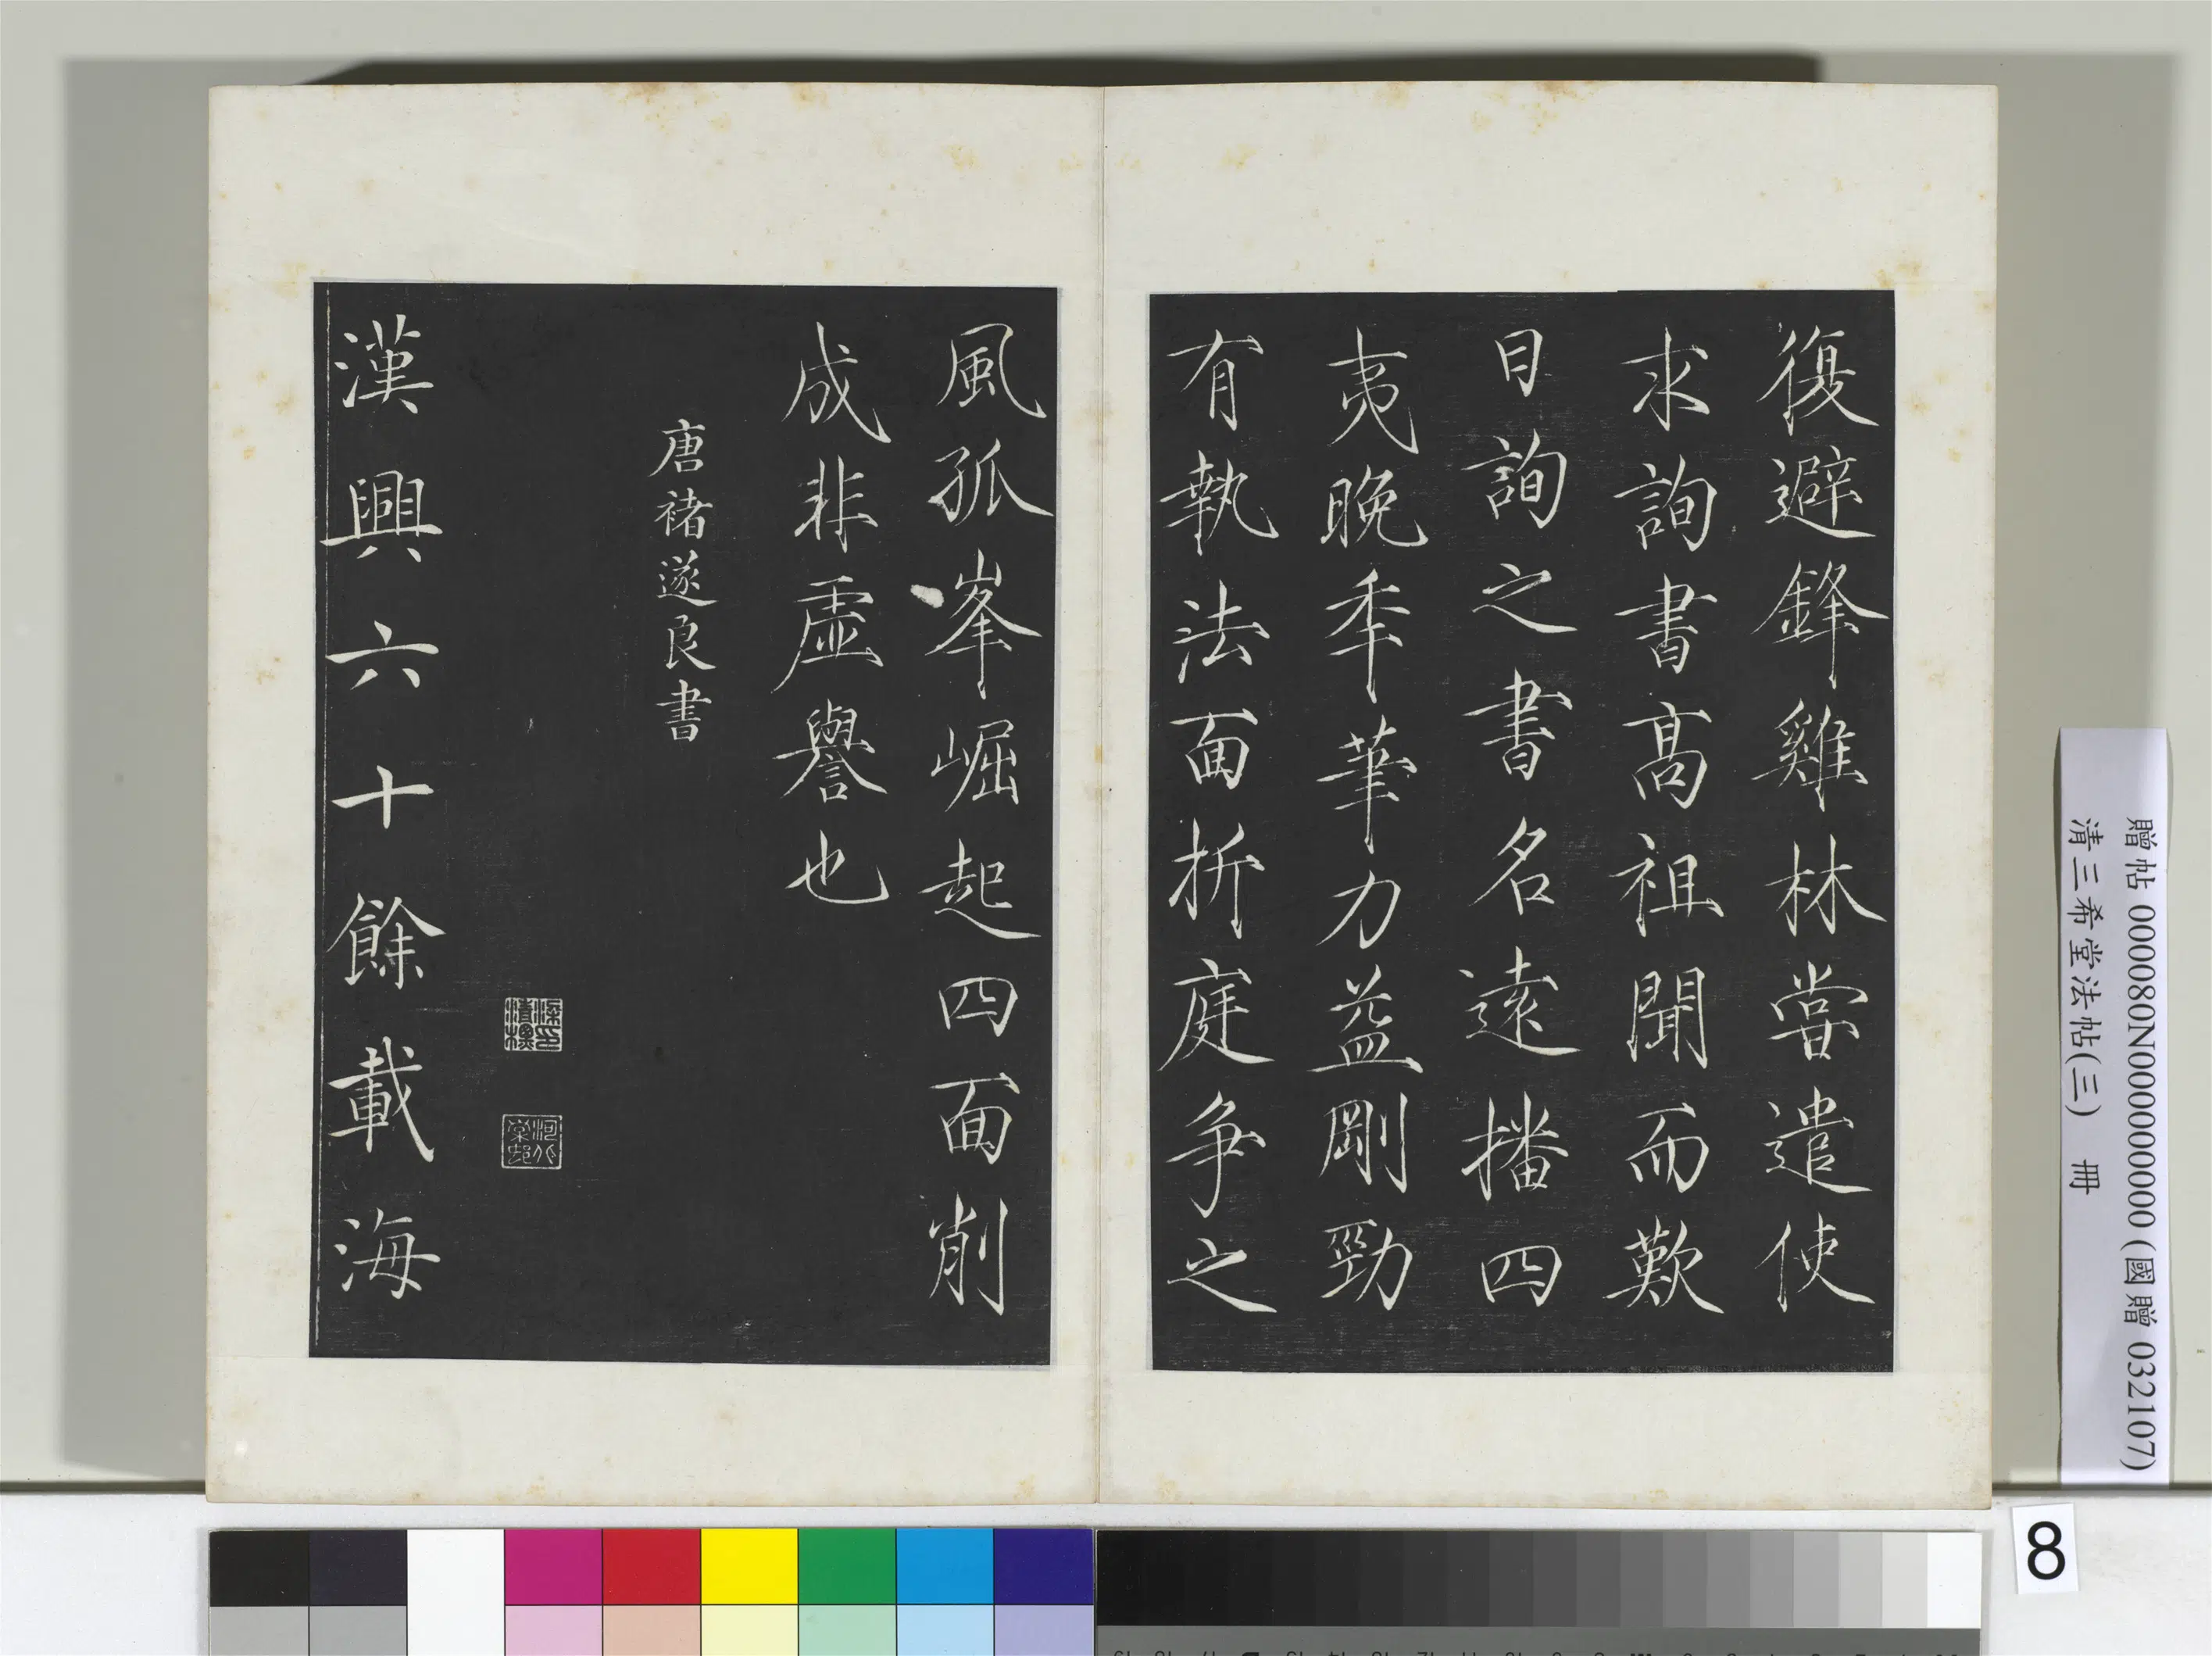 復避鋒雞林嘗遣使
求詢書高祖聞而歎
曰詢之書名遠播四
夷晚季筆力益剛勁
有執法面折庭争之
風孤峯崛起四面削
成非虛譽也
唐褚遂良書
漢興六十餘載海
贈帖 000080N000000000 (國贈 032107)
清三希堂法帖(三) 冊
8